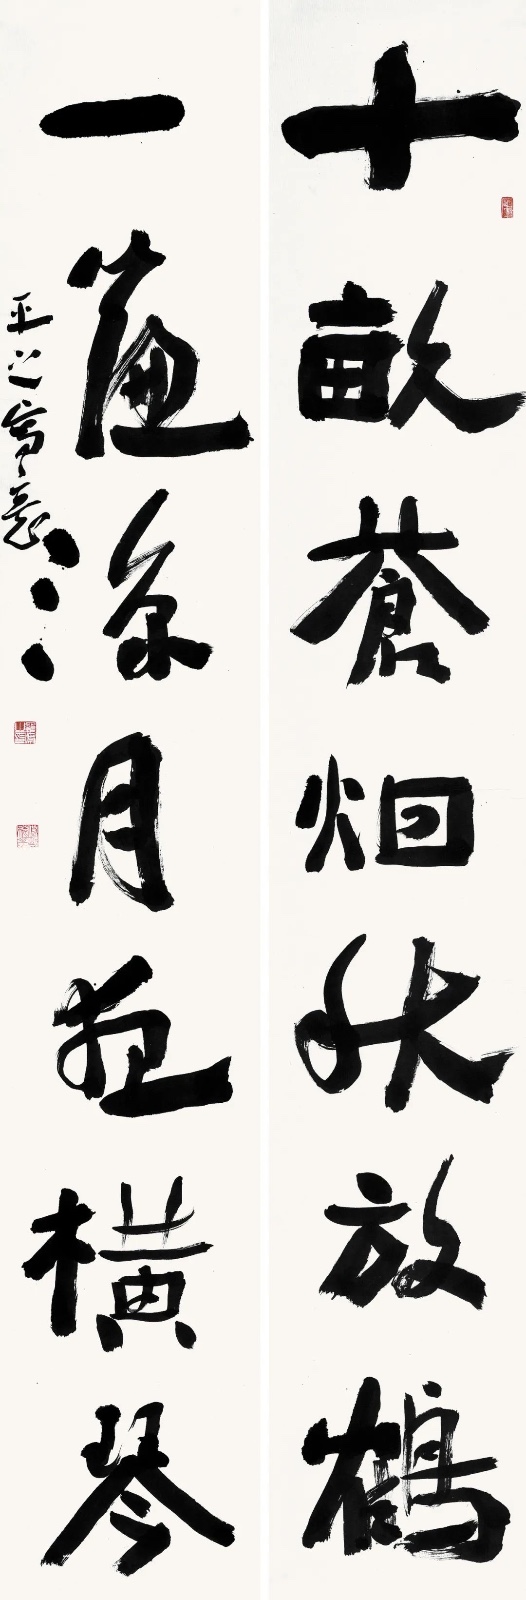 十畝蒼烟秋放鶴
一簾涼月夜橫琴
正之寫意